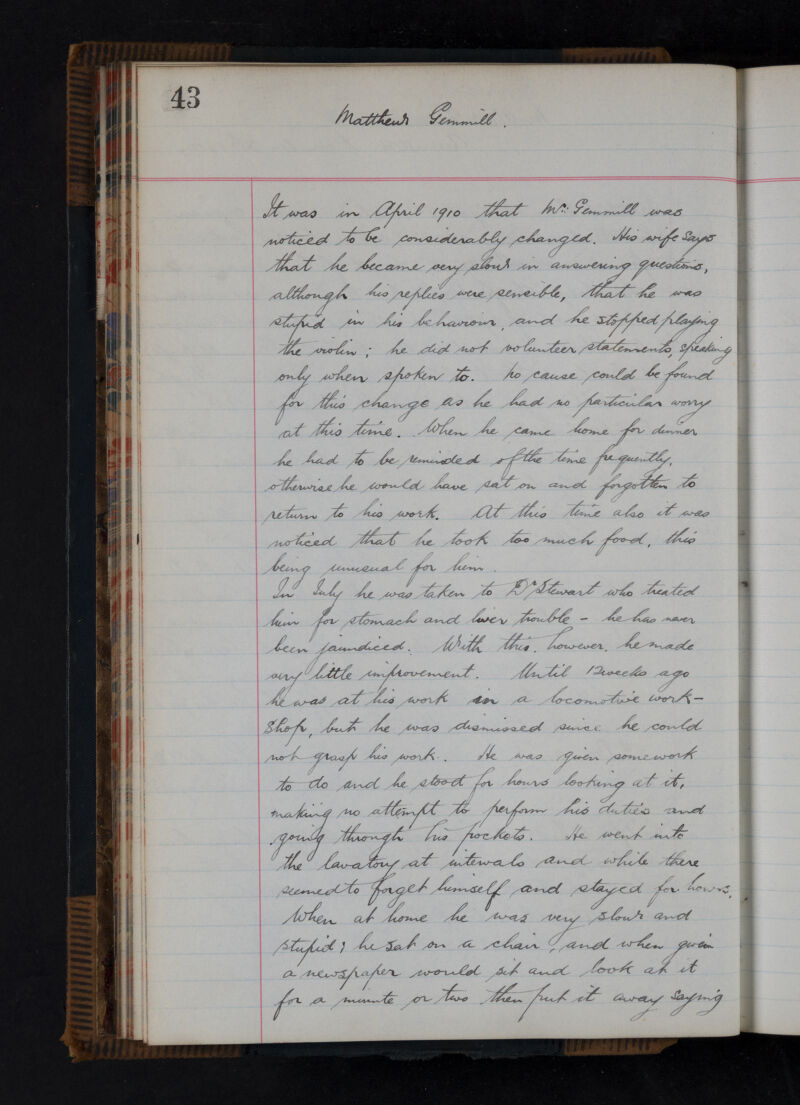 43
Matthew Gemmill.
It was in April 1910 that Mr. Gemmill was
noticed to be considerably changed. His wife says
that he became very slow in answering questions,
although his replies were sensible, that he was
stupid in his behaviour, and he stopped playing
the violin; he did not volunteer statements, speaking
only when spoken to. No cause could be found
for this change as he had no particular worry
at this time. When he came home for dinner
he had to be reminded of the time frequently,
otherwise he would have sat on and forgotten to
return to his work. At this time also it was
noticed that he took too much food, this
being unusual for him.
In July he was taken to Dr Stewart who treated
him for stomach and liver trouble - he has never
been jaundiced. With this, however, he made
very little improvement. Until 12 weeks ago
he was at his work in a locomotive work-
shop, but he was dismissed since he could
not grasp his work. He was given some work
to do and he stood for hours looking at it,
making no attempt to perform his duties and
going through his pockets. He went into
the lavatory at intervals and while there
seemed to forget himself and stayed for hours.
When at home he was very slow and
stupid; he sat on a chair, and when given
a newspaper would sit and look at it
for a minute or two then put it away saying